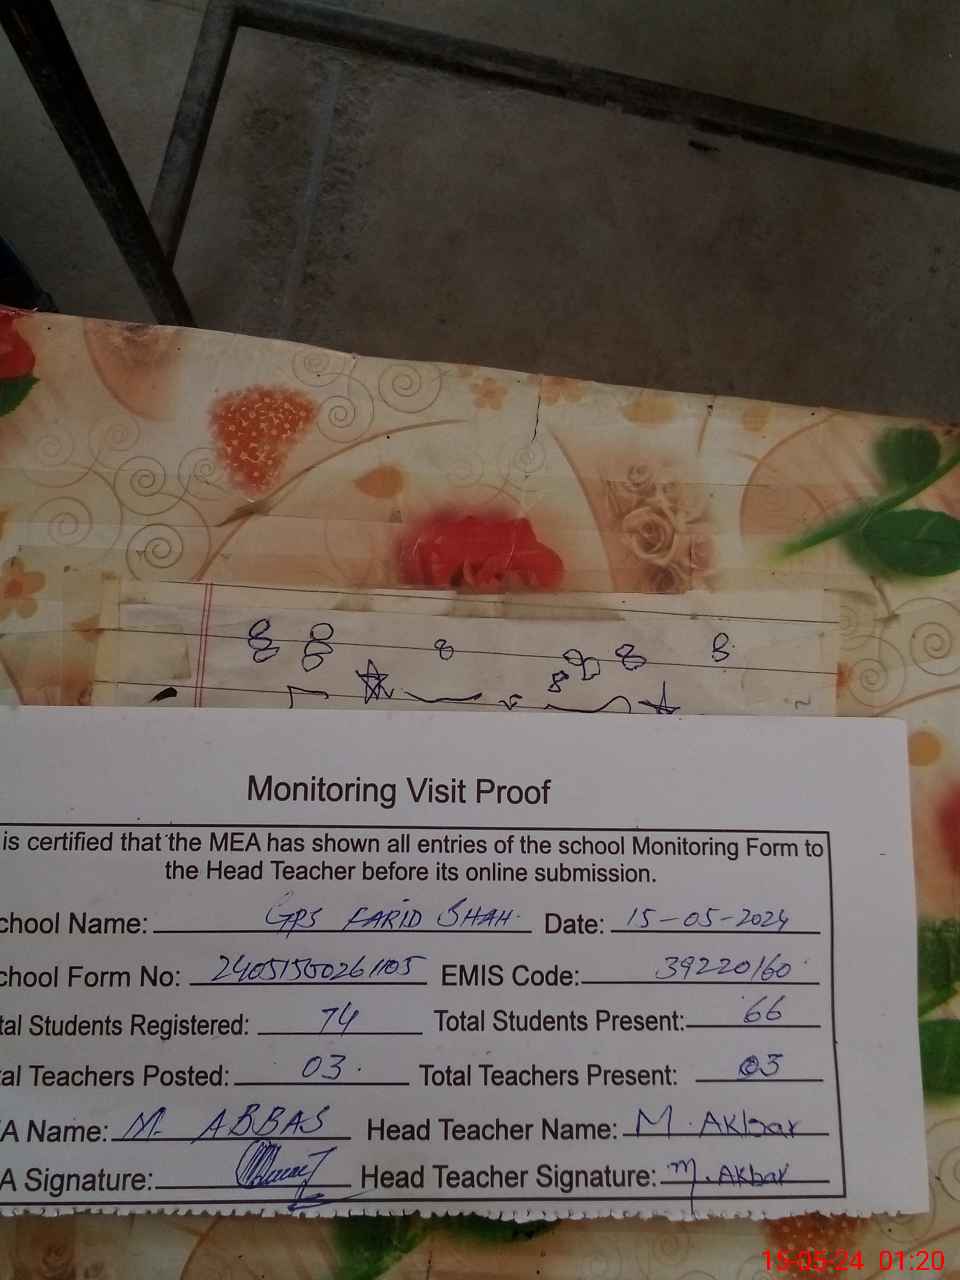 Monitoring Visit Proof
is certified that the MEA has shown all entries of the school Monitoring Form to
the Head Teacher before its online submission.
chool Name: GPS FARID SHAH. Date: 15-05-2024
chool Form No: 24051500261105 EMIS Code: 39220160
tal Students Registered: 74 Total Students Present: 66
al Teachers Posted: 03. Total Teachers Present: 03
A Name: M. ABBAS Head Teacher Name: M. Akbar
A Signature: Head Teacher Signature: M. Akbar
15-05-24 01:20